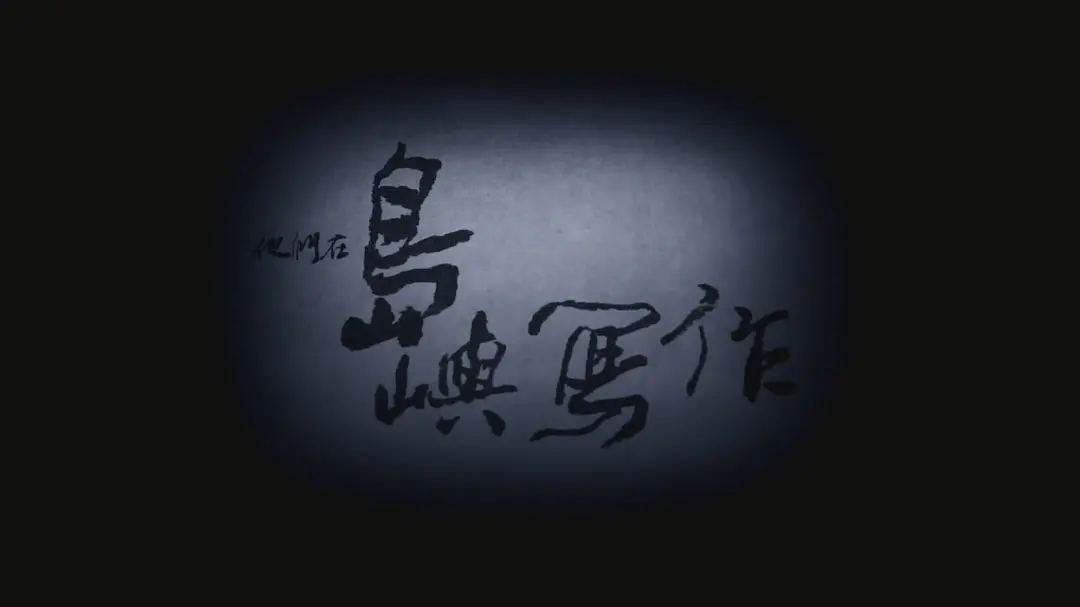 他們在
島嶼寫作